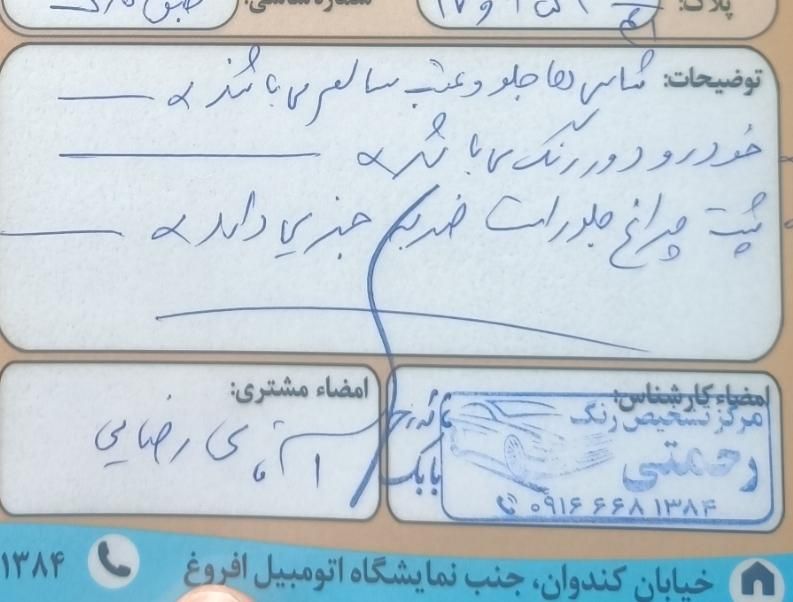 پلاک:
شماره شاسی: طبق کارت
توضیحات: شاسی ها جلو و عقب سالم می باشد
خودرو دور رنگ می باشد
پشت چراغ جلو راست ضربه جزیی دارد
امضاء کارشناس:
مرکز تشخیص رنگ
رحمتی
۰۹۱۶ ۶۶۸ ۱۳۸۴
بابک
امضاء مشتری:
رضایی
خیابان کندوان، جنب نمایشگاه اتومبیل افروغ
۱۳۸۴